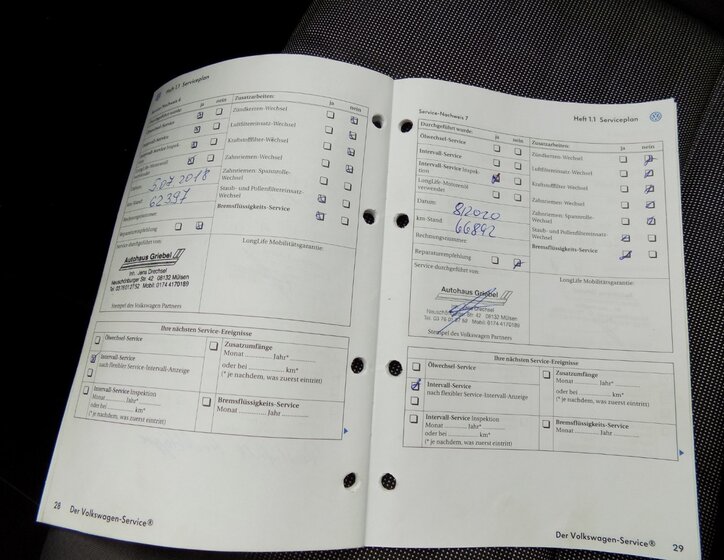 Heft 1.1 Serviceplan
Service-Nachweis 6
Durchgeführt wurde: ja nein
Ölwechsel-Service
Intervall-Service
Intervall-Service Inspek-
tion
LongLife-Motorenöl
verwendet
Datum:
5.07.2018
km-Stand:
62397
Rechnungsnummer:
Reparaturempfehlung
Service durchgeführt von:
Autohaus Griebel
Inh. Jens Drechsel
Neuschönburger Str. 42 08132 Mülsen
Mobil: 0174 4170189
Stempel des Volkswagen Partners
Zusatzarbeiten: ja nein
Zündkerzen-Wechsel
Luftfiltereinsatz-
Wechsel
Kraftstofffilter-Wechsel
Zahnriemen-Wechsel
Zahnriemen: Spannrolle-
Wechsel
Staub- und Pollenfiltereinsatz-
Wechsel
Bremsflüssigkeits-Service
LongLife Mobilitätsgarantie:
Ihre nächsten Service-Ereignisse
Ölwechsel-Service
Intervall-Service
nach flexibler Service-Intervall-Anzeige
Intervall-Service Inspektion
Monat ........... Jahr ...........
oder bei ........... km*
(* je nachdem, was zuerst eintritt)
Zusatzumfänge
Monat ........... Jahr* ...........
oder bei ........... km*
(* je nachdem, was zuerst eintritt)
Bremsflüssigkeits-Service
Monat ........... Jahr ...........
28 Der Volkswagen-Service®
Service-Nachweis 7 Heft 1.1 Serviceplan
Durchgeführt wurde: ja nein
Ölwechsel-Service
Intervall-Service
Intervall-Service Inspek-
tion
LongLife-Motorenöl
verwendet
Datum:
8/2020
km-Stand:
66892
Rechnungsnummer:
Reparaturempfehlung
Service durchgeführt von:
Autohaus Griebel
Str. 42 08132 Mülsen
Mobil: 0174 4170189
Stempel des Volkswagen Partners
Zusatzarbeiten: ja nein
Zündkerzen-Wechsel
Luftfiltereinsatz-
Wechsel
Kraftstofffilter-Wechsel
Zahnriemen-Wechsel
Zahnriemen: Spannrolle-
Wechsel
Staub- und Pollenfiltereinsatz-
Wechsel
Bremsflüssigkeits-Service
LongLife Mobilitätsgarantie:
Ihre nächsten Service-Ereignisse
Ölwechsel-Service
Intervall-Service
nach flexibler Service-Intervall-Anzeige
Intervall-Service Inspektion
Monat ........... Jahr ...........
oder bei ........... km*
(* je nachdem, was zuerst eintritt)
Zusatzumfänge
Monat ........... Jahr* ...........
oder bei ........... km*
(* je nachdem, was zuerst eintritt)
Bremsflüssigkeits-Service
Monat ........... Jahr ...........
Der Volkswagen-Service® 29